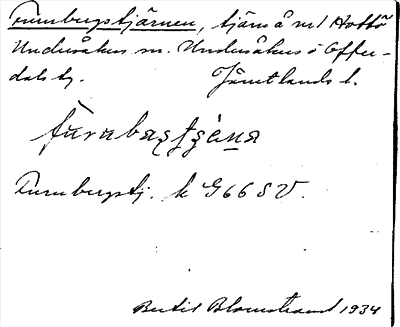 Turnbergstjärnen, tjärn å nr 1 Hottö
Undersåkers sn. Undersåkers o Offer-
dals tg. Jämtlands l.
Turnbergstj. k G66 SV.
Bertil Blomstrand 1934